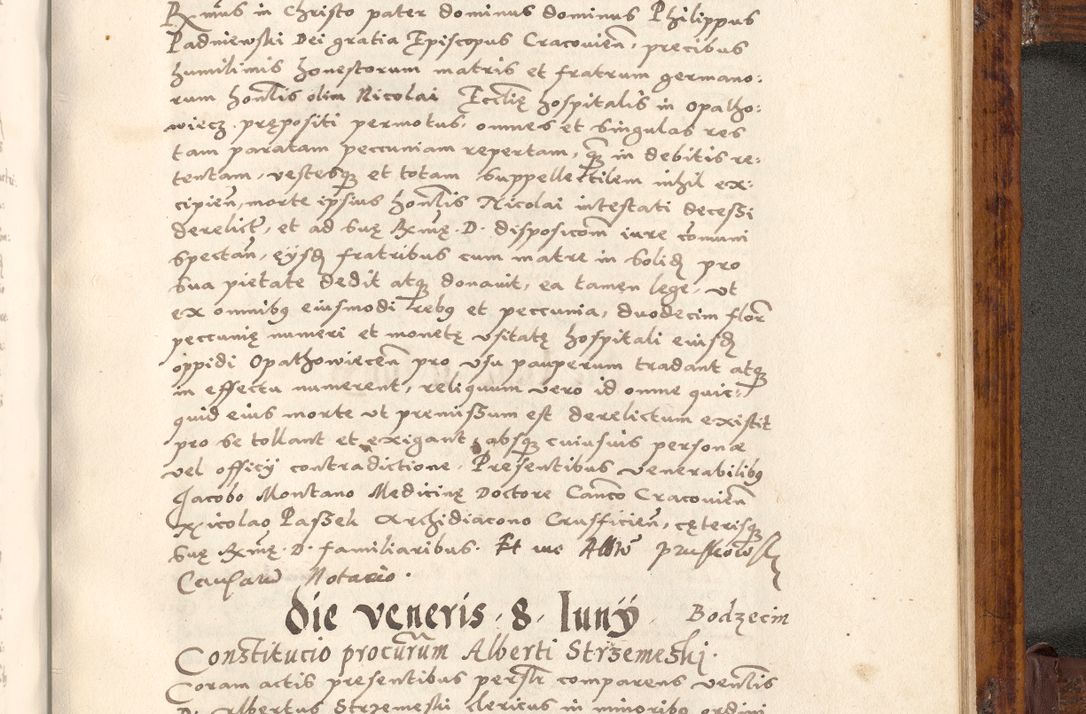 Rxmus in Christo pater dominus dominus Philippus
Padniewski Dei gratia Episcopus Cracovien̄, precibus
humilimis honestorum matris et fratrum germano:
rum hon̄lis olim Nicolai Eccliȩ hospitalis in Opatho:
wiecz prȩpositi permotus, omnes et singulas res
tam paratam peccuniam repertam, qm̄ in debitis re:
tentam, vestesqꝫ et totam suppellectilem nihil ex:
cipien̄, morte ipsius hon̄lis Nicolai intestati decessi
derelict̄, et ad suȩ Rxmȩ D. disposicōm iure cōmuni
spectan̄, eysdꝫ fratribus cum matre in solidꝫ pro
sua pietate dedit atqꝫ donavit, ea tamen lege, vt
ex omnibꝰ eiusmodi rebꝰ et peccunia, duodecim flor̄
peccuniȩ numeri et monetȩ vsitatȩ hospitali eiusdꝫ
oppidi Opathowiecen̄ pro vsu pauperum tradant atqꝫ
in effectu numerent, reliquum vero id omne quic:
quid eius morte vt premissum est derelictum existit
pro se tollant et exigant absqꝫ cuiusuis personæ
vel officÿ contradictione. Presentibus venerabilibꝰ
Jacobo Montano Medicinȩ Doctore Can̄co Cracovien̄
Nicolao Paszek Archidiacono Crusficien̄, cȩterisqꝫ
suȩ Rxmȩ D. familiaribus. Et me Alb̄to Pruskowsky
Causarū Notario.
Die veneris 8 Iunÿ Bodzecin
Constitucio procur̄um Alberti Strzemeski.
Coram actis presentibus person̄lr̄ comparens ven̄lis
D. Albertus Strzemeski clericus in minoribꝰ ordini